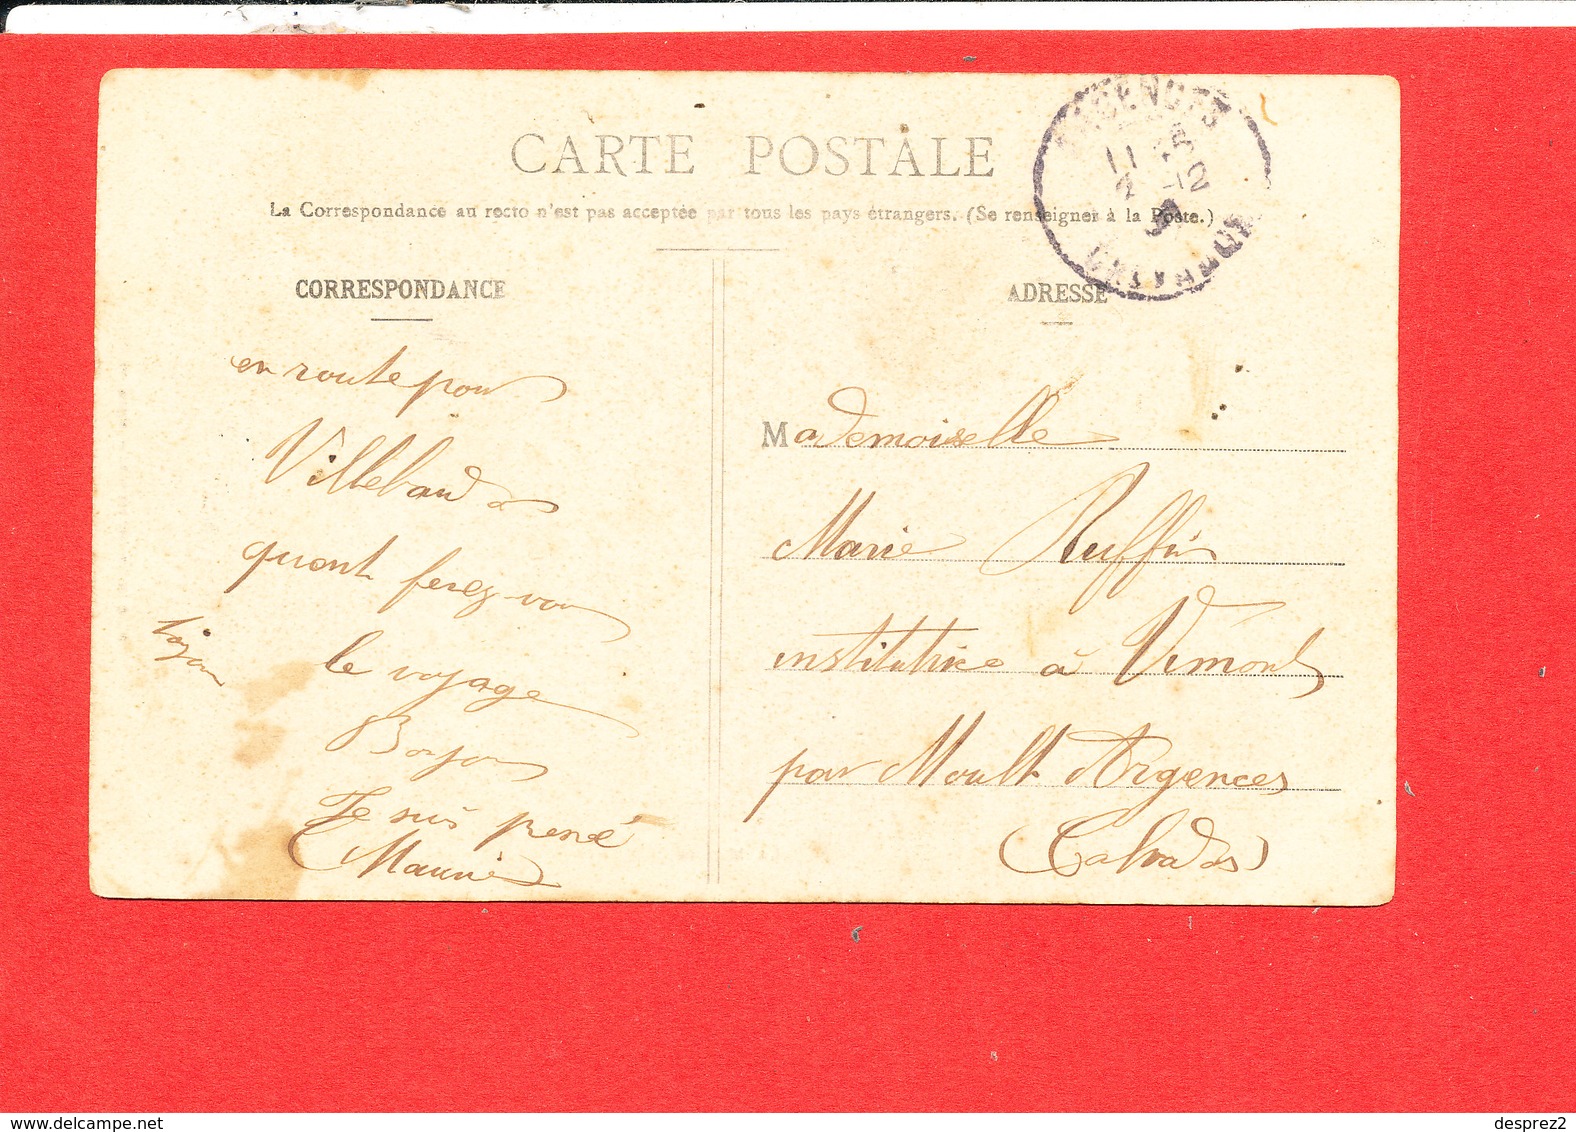 CARTE POSTALE
La Correspondance au recto n'est pas acceptée par tous les pays étrangers. (Se renseigner à la Poste.)
CORRESPONDANCE
en route pour
Villebaudon
quant ferez-vous
le voyage
Je suis
Maurice
ADRESSE
Mademoiselle
Marie Ruffin
institutrice à Vimont
par Moult Argences
(Calvados)
ARGENCES
11
CALVADOS
desprez2